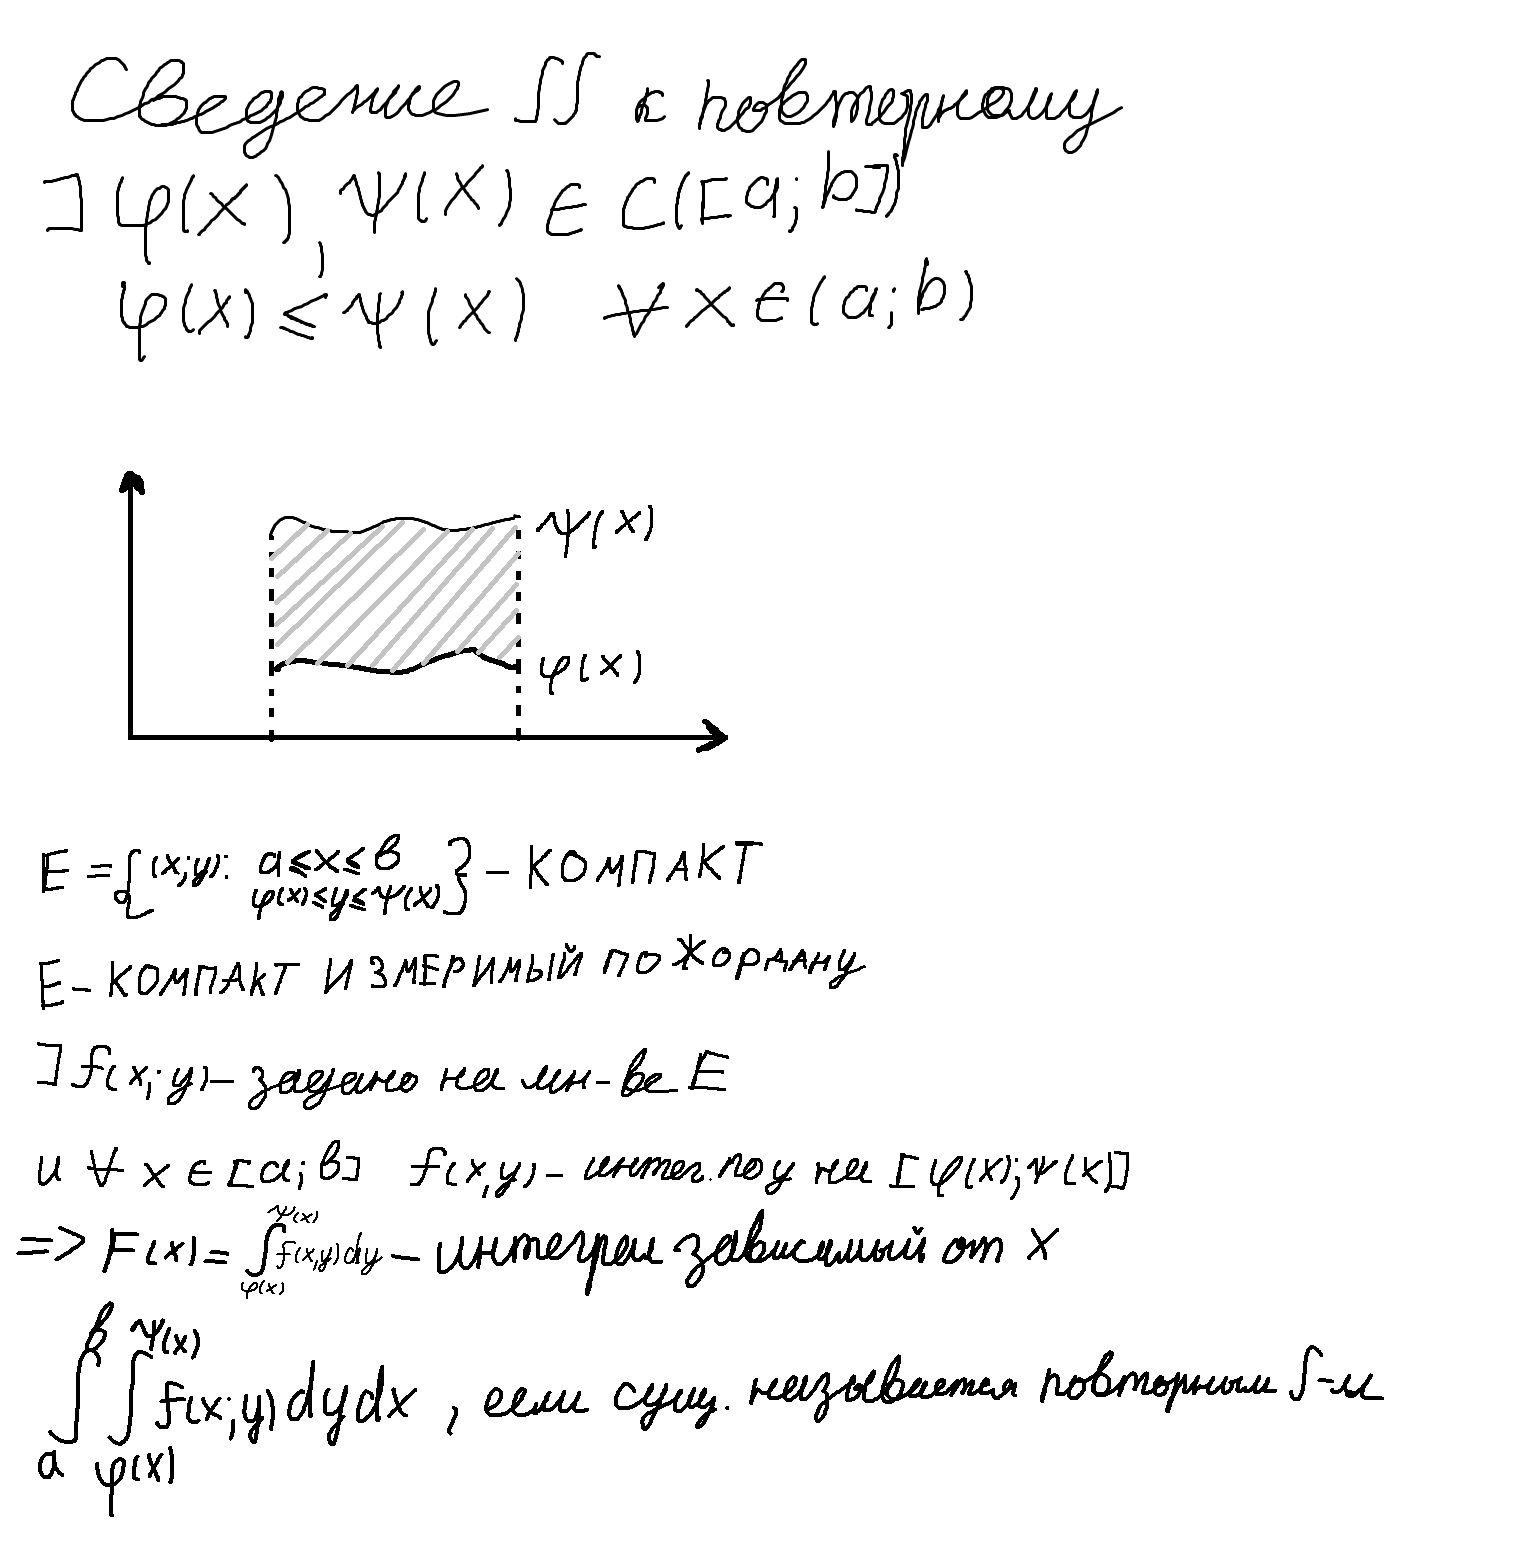 Сведение ∫∫ к повторному
∃ φ(x), ψ(x) ∈ C([a; b])
φ(x) ≤ ψ(x) ∀ x ∈ (a; b)
ψ(x)
φ(x)
E = {(x; y): a ≤ x ≤ b
φ(x) ≤ y ≤ ψ(x)} - КОМПАКТ
E - КОМПАКТ ИЗМЕРИМЫЙ ПО ЖОРДАНУ
] f(x; y) - задано на мн-ве E
и ∀ x ∈ [a; b] f(x, y) - интег. по y на [φ(x); ψ(x)]
=> F(x) = ∫_{φ(x)}^{ψ(x)} f(x, y) dy - интеграл зависимый от x
∫_a^b ∫_{φ(x)}^{ψ(x)} f(x; y) dy dx, если сущ. называется повторным ∫-м